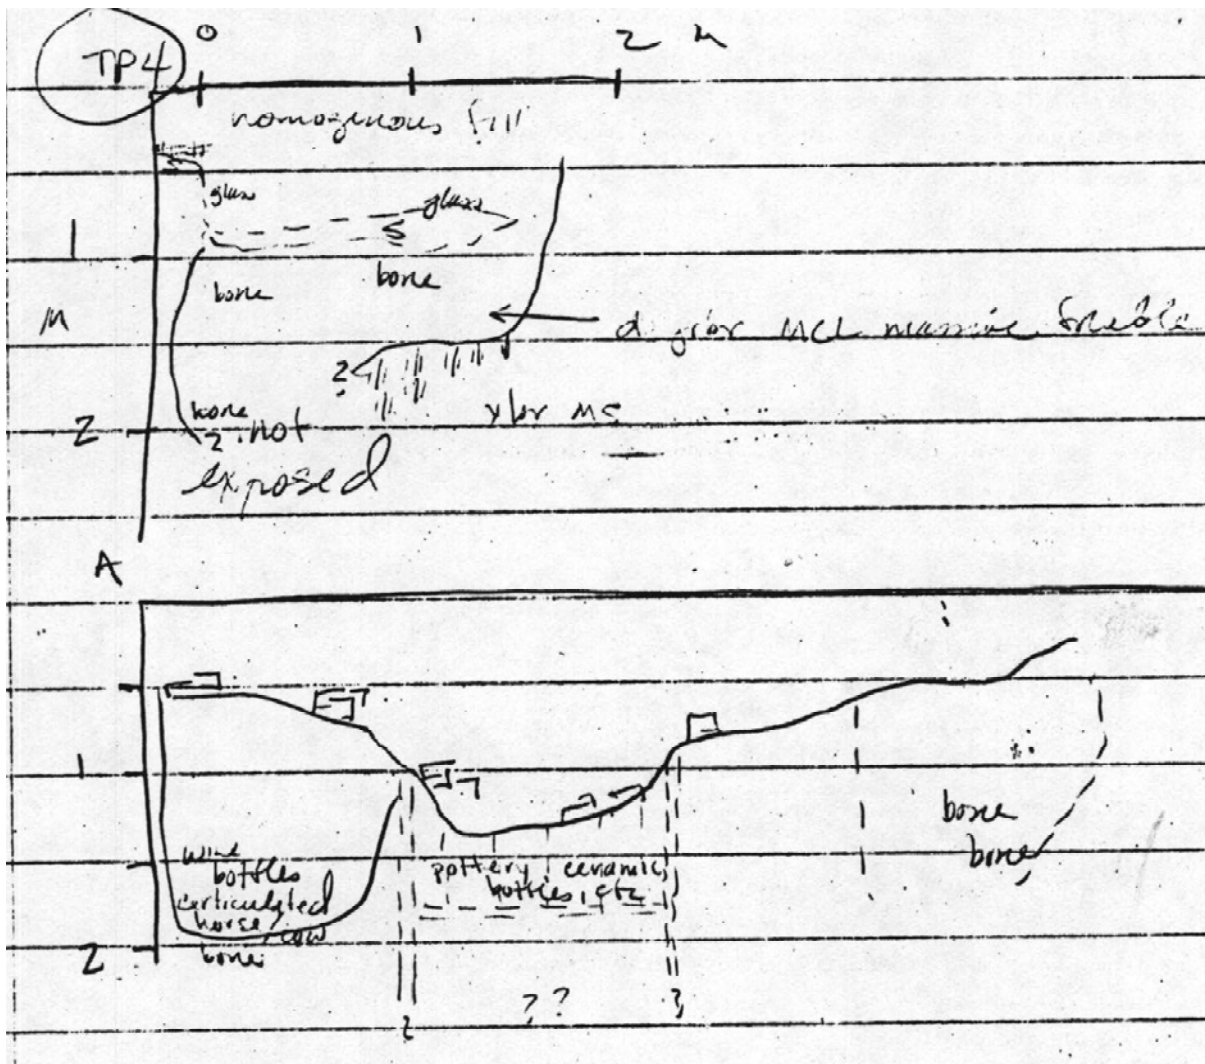 TP4
0 1 2 M
homogenous fill
glass
glass
S
1
bone
bone
M
d grbr MCL massive friable
?
bone
ybr MS
2
? not
exposed
A
1
bone
bone
wine
bottles
articulated
horse, cow
bone
pottery, ceramic,
bottles, etc
2
? ? ? ?